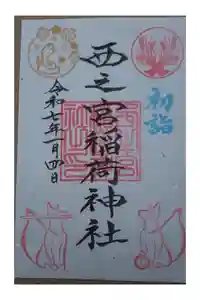 初詣
西之宮稲荷神社
令和七年一月四日